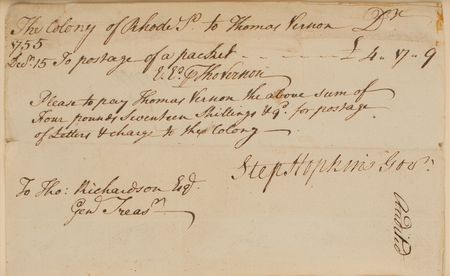 The Colony of Rhode Isd. to Thomas Vernon Dr.
1755
Decr. 15 To postage of a packet £ 4 " 17 " 9
E. E. ⅌ Tho Vernon
Please to pay Thomas Vernon the above sum of
Four pounds Seventeen Shillings & 9d. for postage
of Letters & charge to the Colony
Step Hopkins Govr.
To Tho: Richardson Esqr.
Genl. Treasr.
Audited